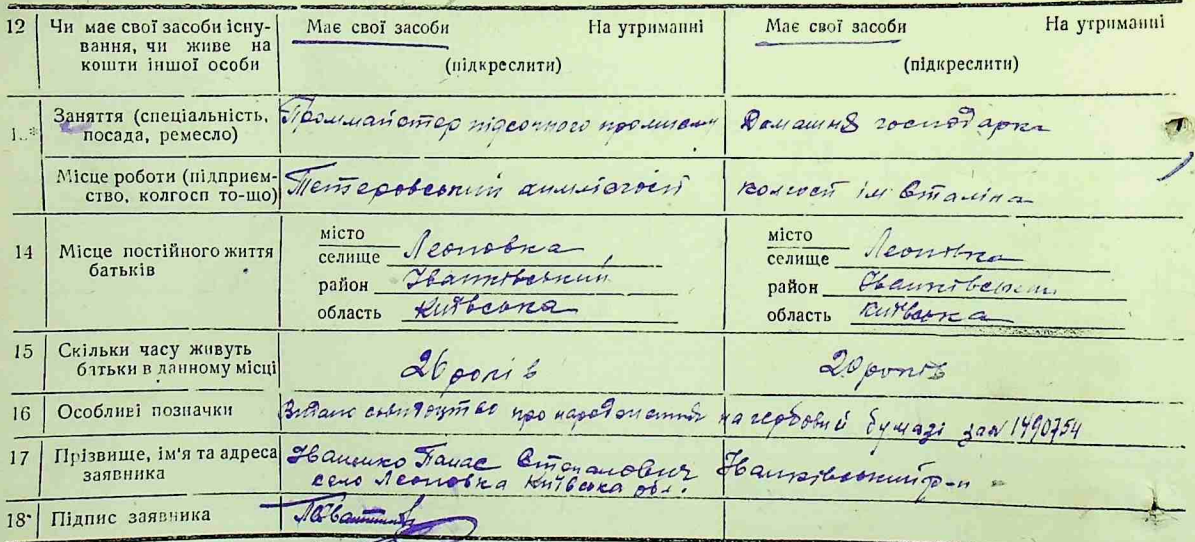 12 Чи має свої засоби існування, чи живе на кошти іншої особи
Має свої засоби На утриманні
(підкреслити)
Має свої засоби На утриманні
(підкреслити)
Заняття (спеціальність, посада, ремесло)
Проммайстер підсочного промислу
Домашня господарка
Місце роботи (підприємство, колгосп то-що)
Тетеровський химлісгосп
колгосп ім Сталіна
14 Місце постійного життя батьків
місто
селище Леоновка
район Іванківський
область Київська
місто
селище Леоновка
район Іванківський
область Київська
15 Скільки часу живуть батьки в данному місці
26 років
20 років
16 Особливі позначки
про народження на гербовій бумазі за № 1490754
17 Прізвище, ім'я та адреса заявника
Іващенко Панас
село Леоновка Київська обл. Іванківський р-н
18 Підпис заявника